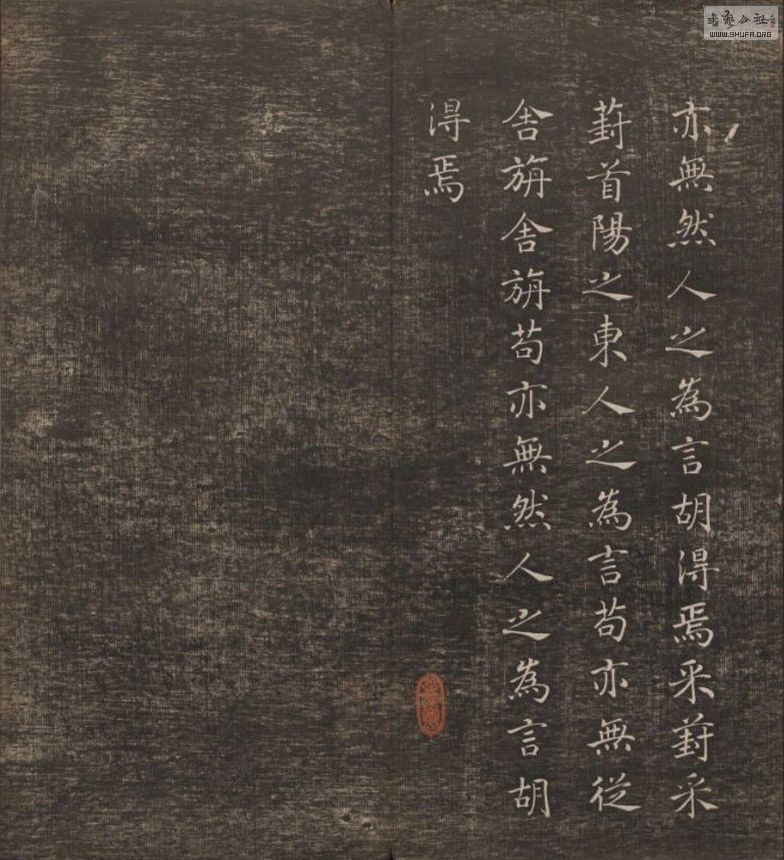 亦無然人之為言胡得焉采葑采
葑首陽之東人之為言苟亦無從
舍旃舍旃苟亦無然人之為言胡
得焉
WWW.SHUFA.ORG